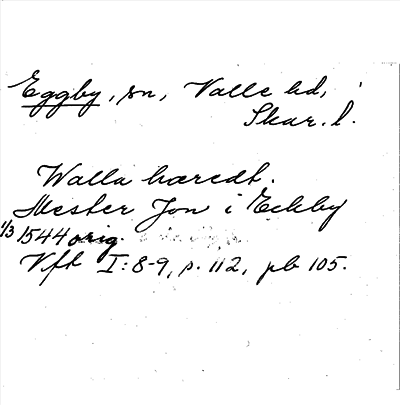 Eggby, sn, Valle hd,
Skar. l.
Walla hæredt.
Mester Jon i Eckby
1/3 1544 orig.
Vft I:8-9, s. 112, pb 105.